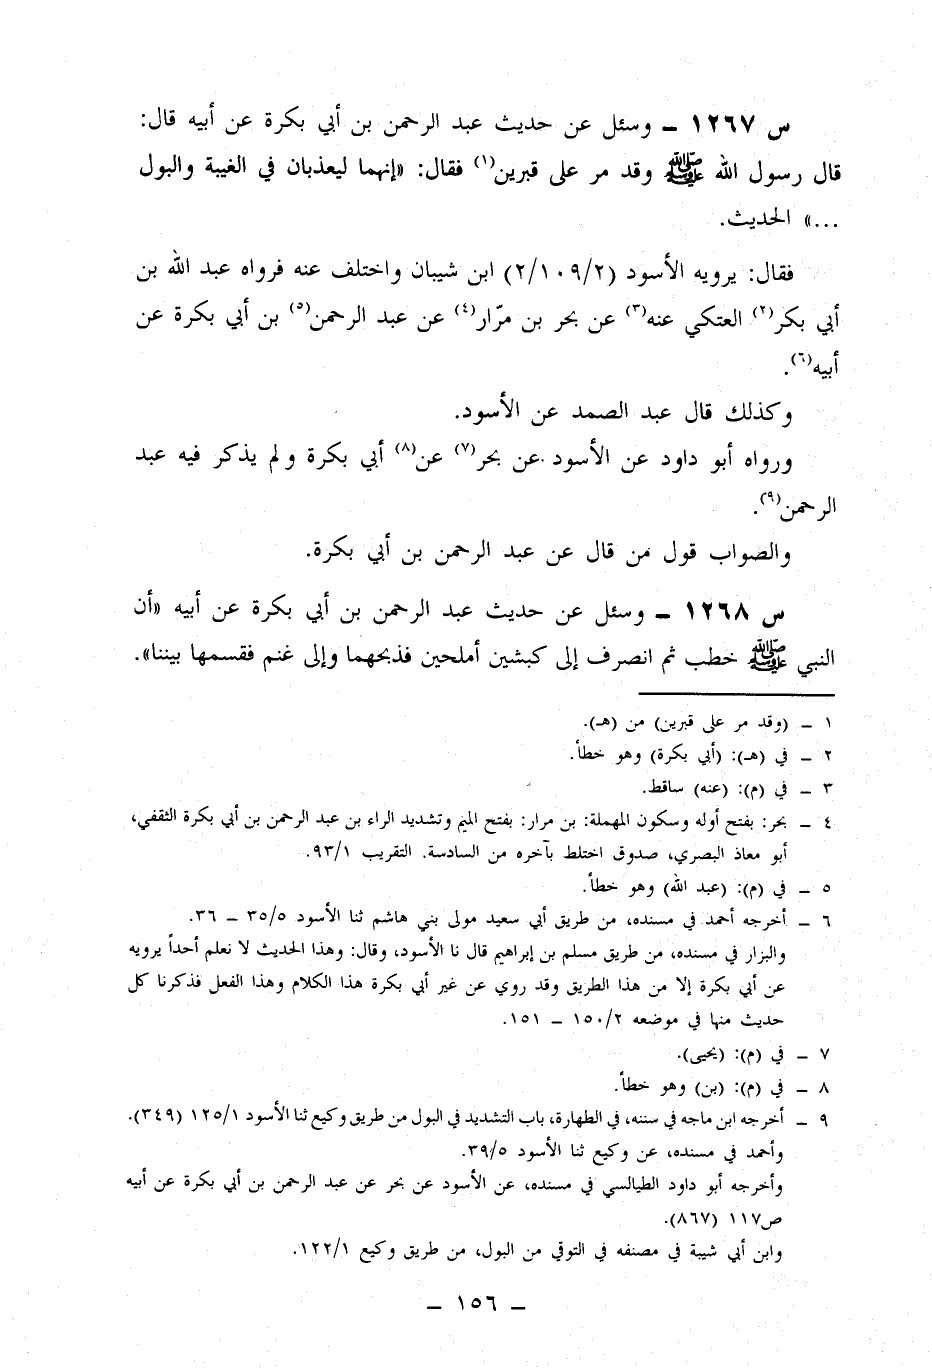 س ١٢٦٧ ـ وسئل عن حديث عبد الرحمن بن أبي بكرة عن أبيه قال:
قال رسول الله ﷺ وقد مر على قبرين(١) فقال: «إنهما ليعذبان في الغيبة والبول
...» الحديث.
فقال: يرويه الأسود (٢/١٠٩/٢) ابن شيبان واختلف عنه فرواه عبد الله بن
أبي بكر(٢) العتكي عنه(٣) عن بحر بن مرّار(٤) عن عبد الرحمن(٥) بن أبي بكرة عن
أبيه(٦).
وكذلك قال عبد الصمد عن الأسود.
ورواه أبو داود عن الأسود عن بحر(٧) عن(٨) أبي بكرة ولم يذكر فيه عبد
الرحمن(٩).
والصواب قول من قال عن عبد الرحمن بن أبي بكرة.
س ١٢٦٨ ـ وسئل عن حديث عبد الرحمن بن أبي بكرة عن أبيه «أن
النبي ﷺ خطب ثم انصرف إلى كبشين أملحين فذبحهما وإلى غنم فقسمها بيننا».
١ ـ (وقد مر على قبرين) من (هـ).
٢ ـ في (هـ): (أبي بكرة) وهو خطأ.
٣ ـ في (م): (عنه) ساقط.
٤ ـ بحر: بفتح أوله وسكون المهملة: بن مرار: بفتح الميم وتشديد الراء بن عبد الرحمن بن أبي بكرة الثقفي،
أبو معاذ البصري، صدوق اختلط بآخره من السادسة. التقريب ٩٣/١.
٥ ـ في (م): (عبد الله) وهو خطأ.
٦ ـ أخرجه أحمد في مسنده، من طريق أبي سعيد مولى بني هاشم ثنا الأسود ٣٥/٥ ـ ٣٦.
والبزار في مسنده، من طريق مسلم بن إبراهيم قال نا الأسود، وقال: وهذا الحديث لا نعلم أحداً يرويه
عن أبي بكرة إلا من هذا الطريق وقد روي عن غير أبي بكرة هذا الكلام وهذا الفعل فذكرنا كل
حديث منها في موضعه ١٥٠/٢ ـ ١٥١.
٧ ـ في (م): (يحيى).
٨ ـ في (م): (بن) وهو خطأ.
٩ ـ أخرجه ابن ماجه في سننه، في الطهارة، باب التشديد في البول من طريق وكيع ثنا الأسود ١٢٥/١ (٣٤٩).
وأحمد في مسنده، عن وكيع ثنا الأسود ٣٩/٥.
وأخرجه أبو داود الطيالسي في مسنده، عن الأسود عن بحر عن عبد الرحمن بن أبي بكرة عن أبيه
ص١١٧ (٨٦٧).
وابن أبي شيبة في مصنفه في التوقي من البول، من طريق وكيع ١٢٢/١.
ـ ١٥٦ ـ